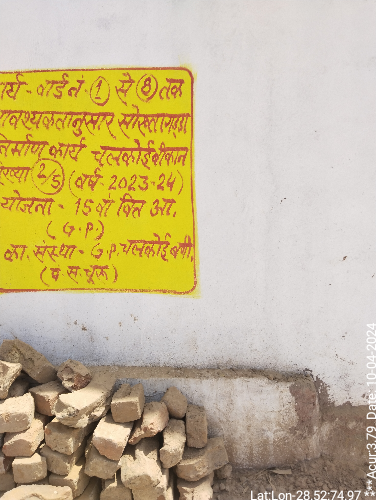 कार्य - वार्ड नं. 1 से 8 तक
आवश्यकतानुसार सोख्ता गड्ढा
निर्माण कार्य चलकोई बीकान
संख्या 2/5 (वर्ष 2023-24)
योजना - 15 वां वित्त आ.
(G.P.)
का. संस्था - G.P. चलकोई बणी.
(पं. स. चूरू)
Lat:Lon-28.52:74.97
***Acur:3.79 Date, 10-04-2024